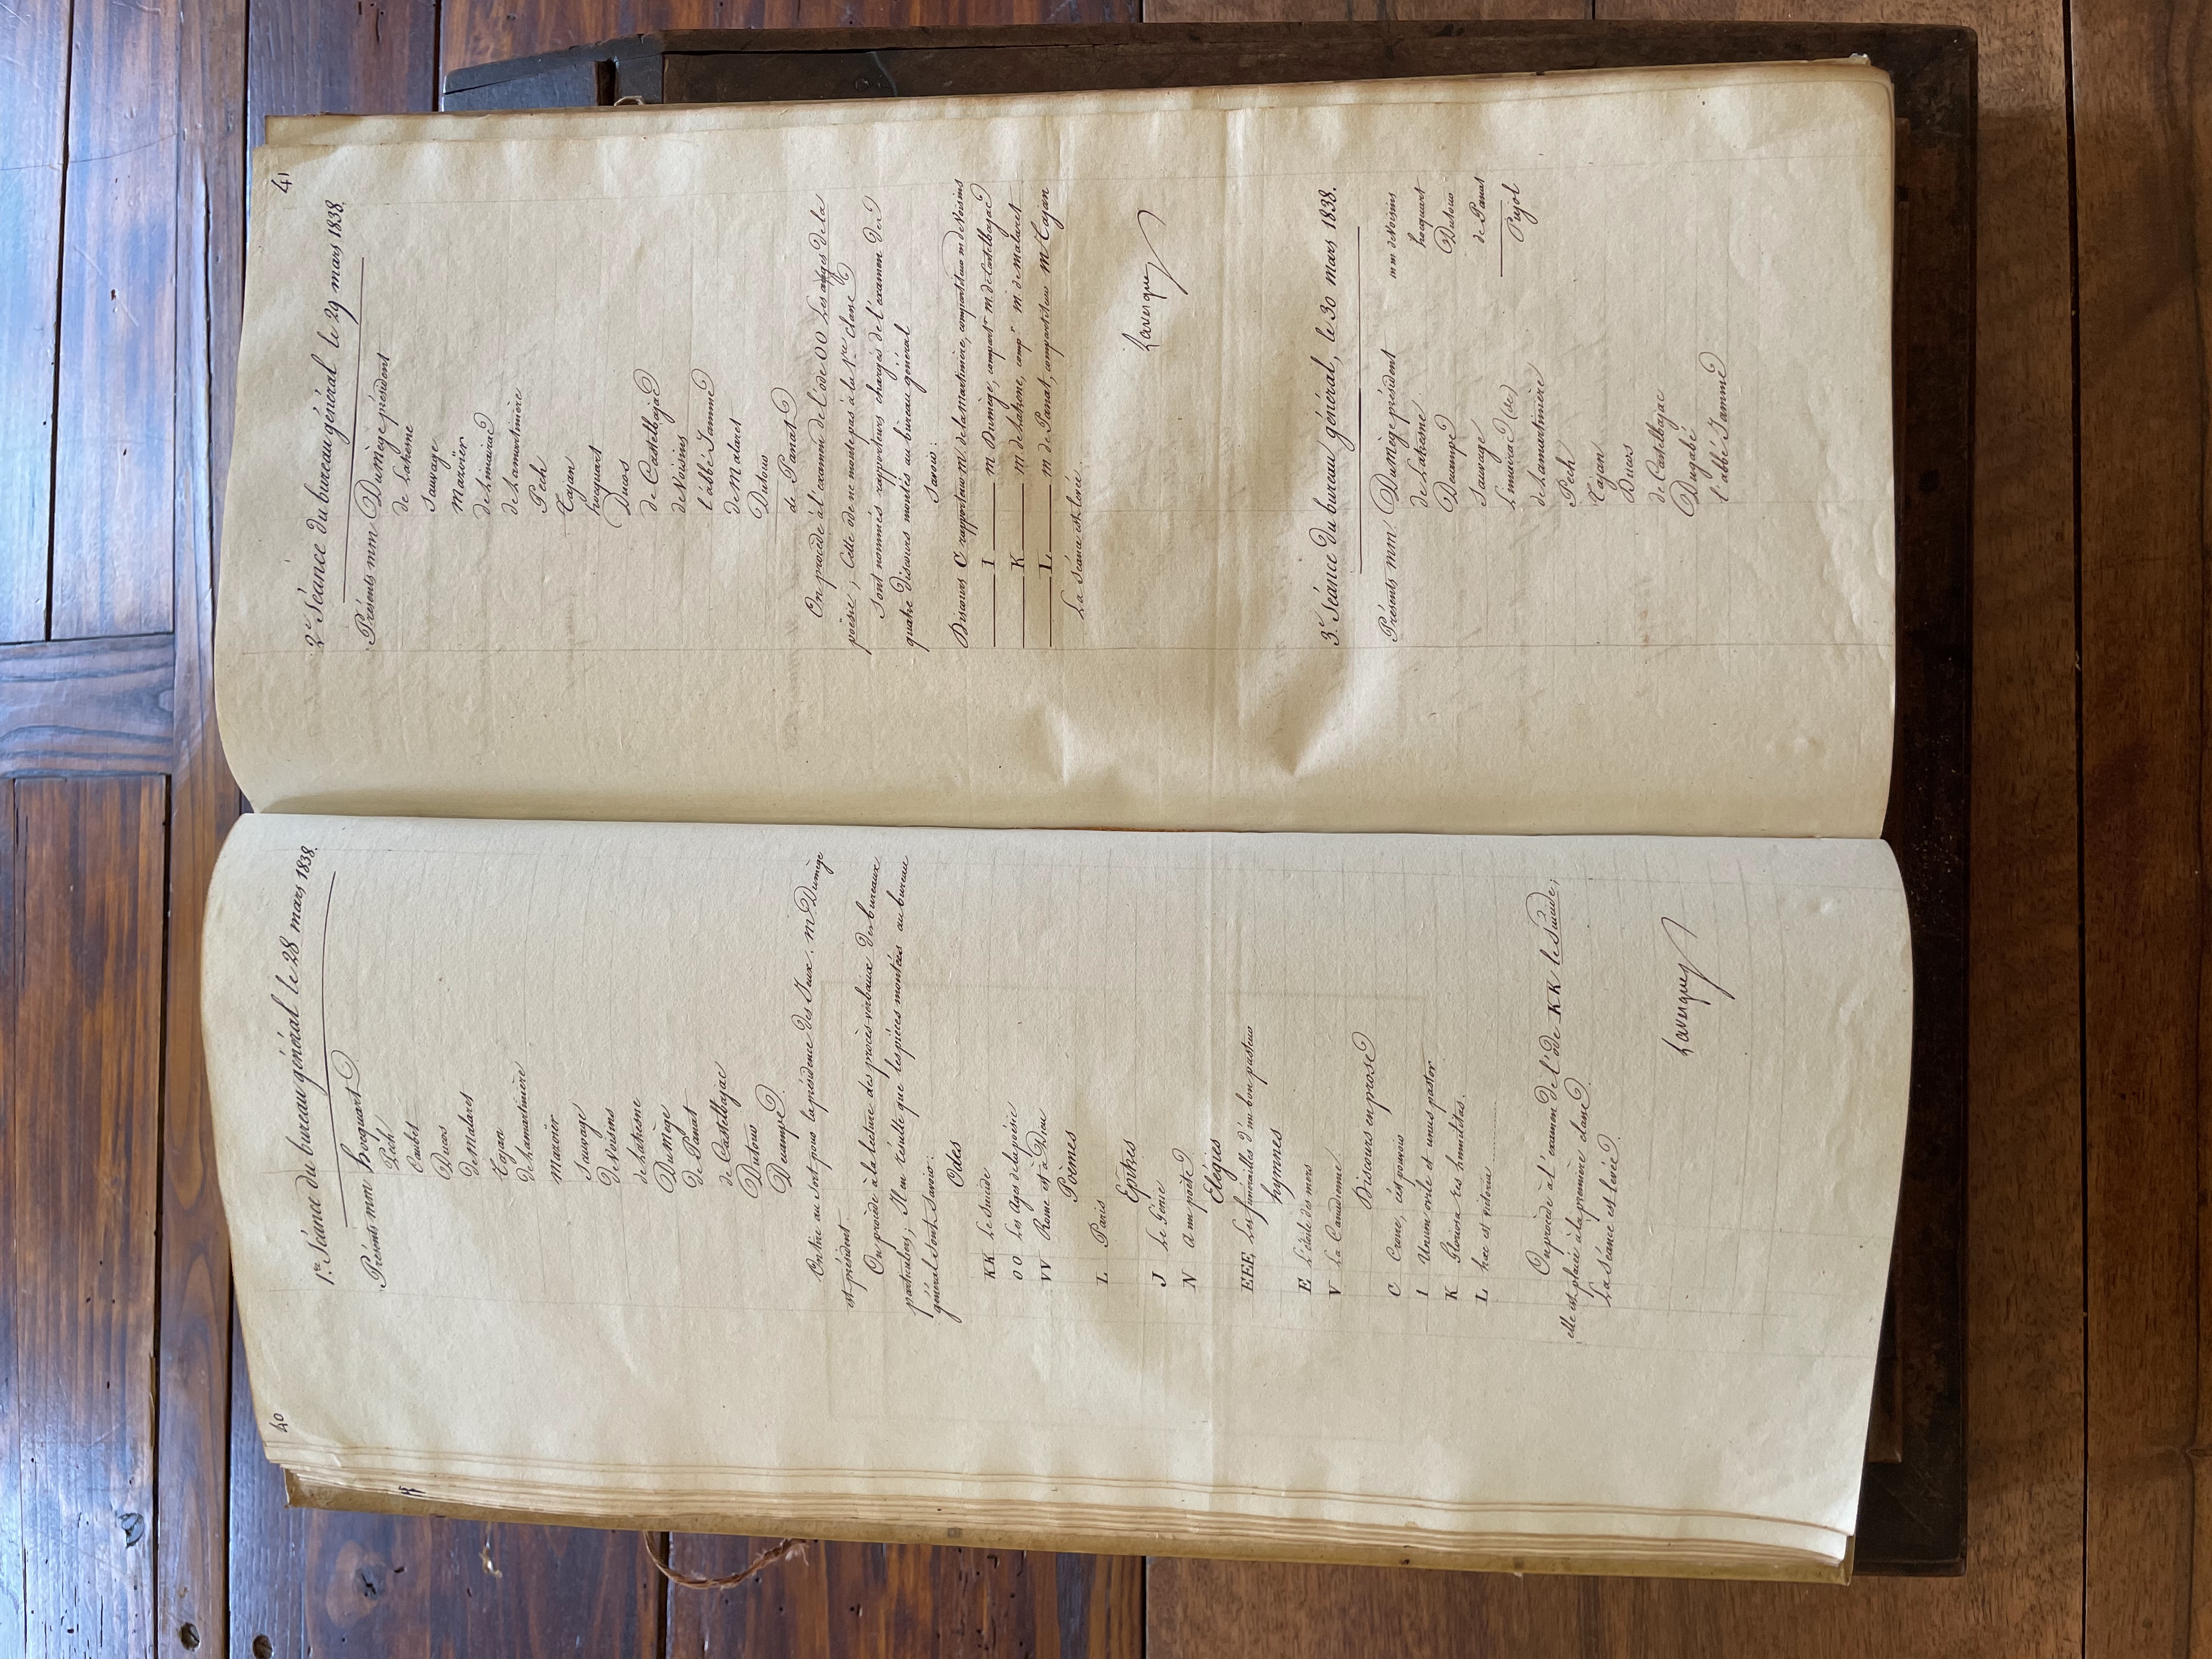 40
1re Séance du bureau général le 28 mars 1838.
Présents mm hocquart
Pech
Caubet
Ducos
de Malaret
Cajan
de Lamartinière
Mazoïer
Sauvage
de Voisins
de Lahesne
Dumège
de Panat
de Castelbajac
Dutour
Decampe.
On tire au sort pour la présidence des Jeux. m. Dumège
est président.
On procède à la lecture des procès-verbaux des bureaux
particuliers; Il en résulte que les pièces montées au bureau
général sont Savoir:
Odes
KK Le Suicide
OO Les Ages de la poésie
VV Rome est à Dieu
Poèmes
L Paris
Epitres
J Le Génie
N à un poète
Elégies
EEE Les funérailles d'un bon pasteur
hymnes
E L'étoile des mers
V La Canadienne.
Discours en prose
C Croire, c'est pouvoir
I Unum ovile et unus pastor
K Gloriosa res humilitas.
L hæc est victoria
On procède à l'examen de l'ode KK le Suicide;
elle est placée à la première classe.
La Séance est levée.
Lavergne
41
2e Séance du bureau général le 29 mars 1838.
Présents mm Dumège président
de Lahesne
Sauvage
Mazoïer
de Limairac
de Lamartinière
Pech
Cajan
hocquart
Ducos
de Castelbajac
de Voisins
l'abbé Jamme
de Malaret
Dutour
de Panat
On procède à l'examen de l'ode OO Les ages de la
poésie; Cette ode ne monte pas à la 1re classe
Sont nommés rapporteurs chargés de l'examen des
quatre Discours montés au bureau général
Savoir:
Discours C rapporteur M. de la Martinière, compartiteur m de Voisins
I m Dumège, compartr m. de Castelbajac
K m de Lahesne, compr m. de Malaret
L m de Panat, compartiteur m Cajan
La Séance est levée.
Lavergne
3e Séance du bureau général, le 30 mars 1838.
Présents mm. Dumège président
de Lahesne
Decampe
Sauvage
Limairac (de)
de Lamartinière
Pech
Cajan
Ducos
de Castelbajac
Dugabé
l'abbé Jamme
mm de Voisins
hocquart
Dutour
de Panat
Pujol